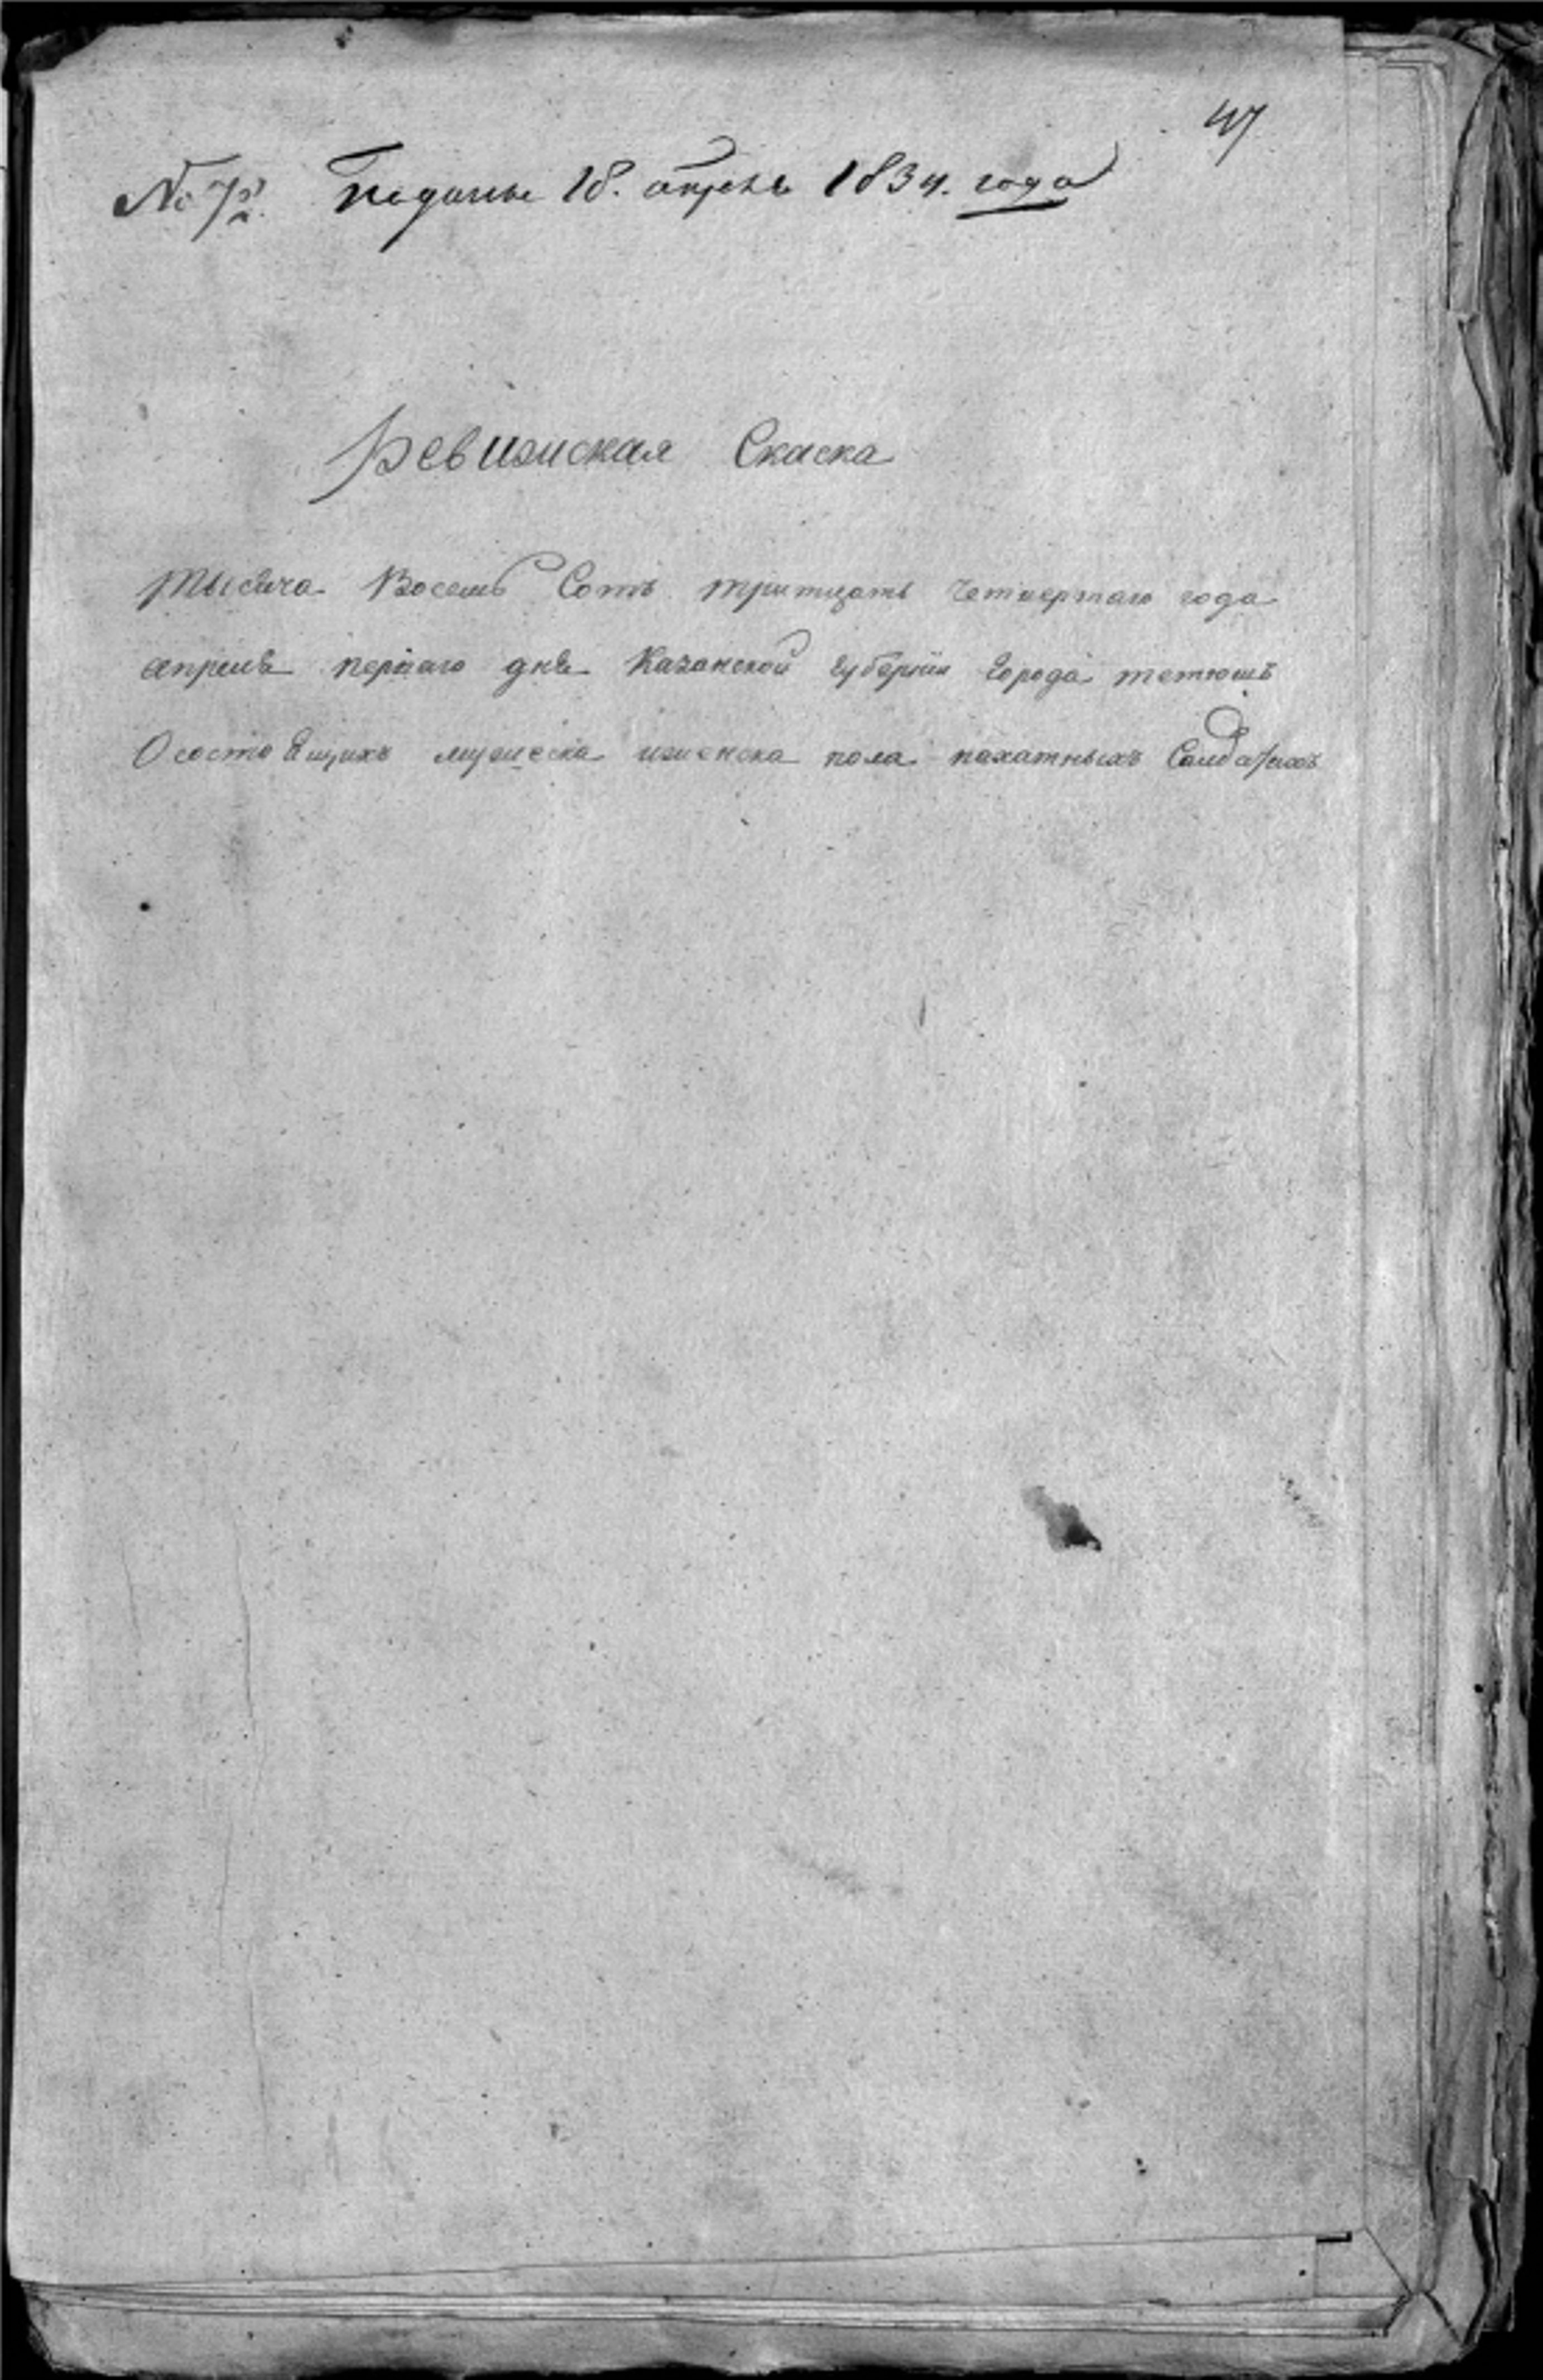 47
№ 72. Поданы 18. апреля 1834. года
Ревизиская Скаска
Тысяча Восемь Сотъ тритцать четвертаго года
апреля перваго дня Казанской губернии города тетюшъ
О состоящихъ мужеска иженска пола пахатныхъ Салдатахъ